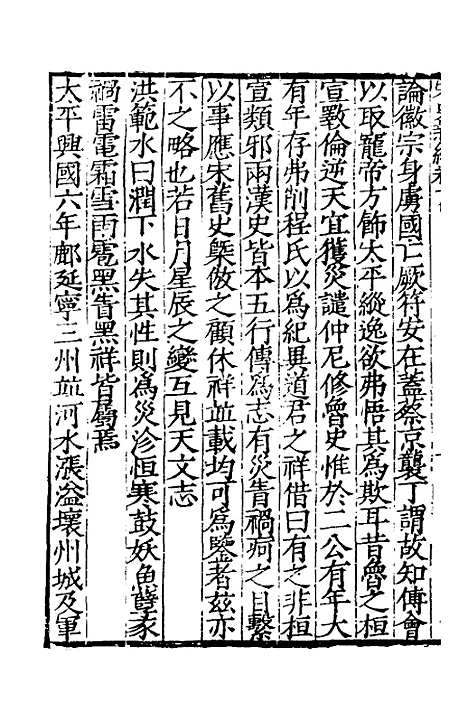 論徽宗身虜國亡厥符安在蓋蔡京襲丁謂故知傅會
以取寵帝方飾太平縱逸欲弗悟其為欺耳昔魯之桓
宣斁倫逆天宜獲災譴仲尼修魯史惟於二公有年大
有年存弗削程氏以為紀異道君之祥借曰有之非桓
宣類邪兩漢史皆本五行傳為志有災眚禍痾之目繫
以事應宋舊史槩倣之顧休祥並載均可為鑒者兹亦
不之略也若日月星辰之變互見天文志
洪範水曰潤下水失其性則為災沴恒寒鼓妖魚孽豕
禍雷電霜雪雨雹黑眚黑祥皆屬焉
太平興國六年鄜延寧三州並河水漲溢壞州城及軍